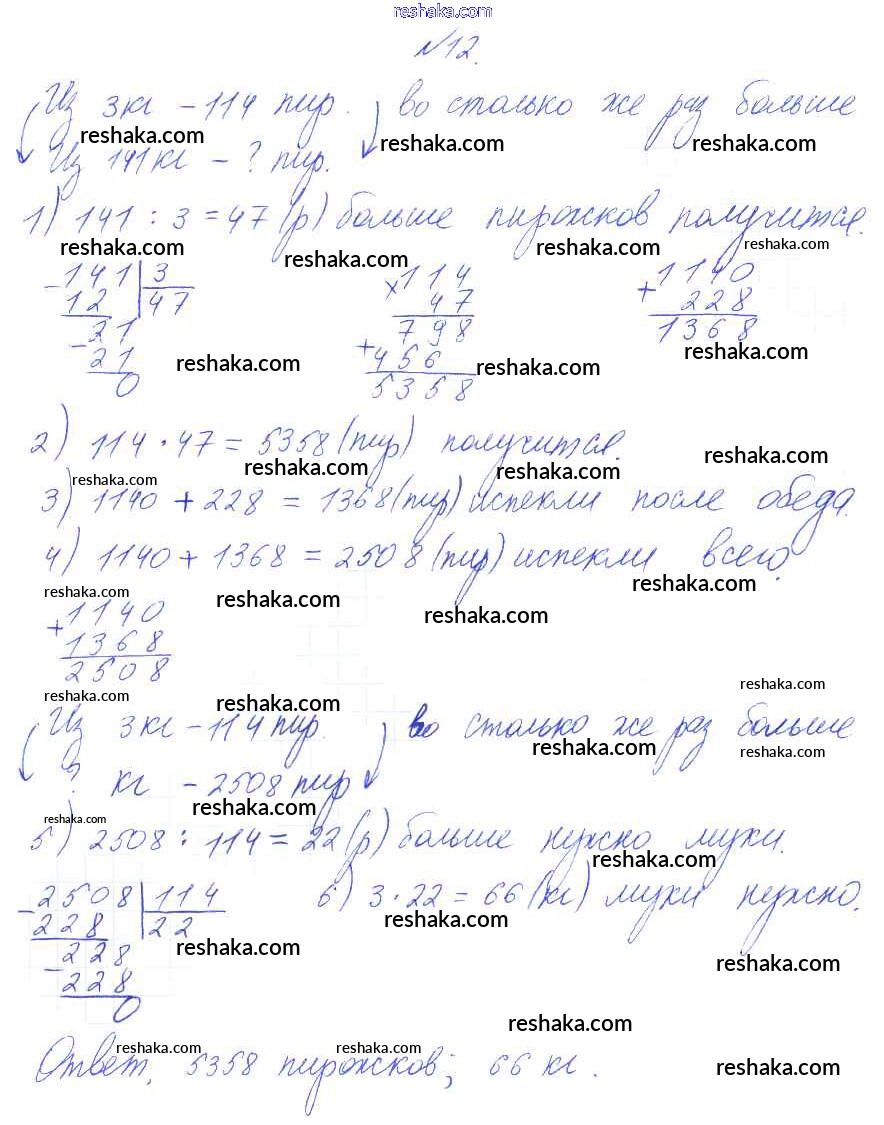 reshaka.com
№12.
Из 3кг – 114 пир. во столько же раз больше
reshaka.com reshaka.com reshaka.com
Из 141кг – ? пир.
1) 141 : 3 = 47 (р) больше пирожков получится.
reshaka.com reshaka.com reshaka.com reshaka.com
– 141 | 3
12 | 47
– 21
21
0
× 114
47
798
+ 456
5358
+ 1140
228
1368
reshaka.com reshaka.com reshaka.com
2) 114 · 47 = 5358 (пир) получится.
reshaka.com reshaka.com reshaka.com reshaka.com
3) 1140 + 228 = 1368 (пир) испекли после обеда.
4) 1140 + 1368 = 2508 (пир) испекли всего.
reshaka.com reshaka.com reshaka.com reshaka.com
+ 1140
1368
2508
reshaka.com reshaka.com reshaka.com
Из 3кг – 114 пир. во столько же раз больше
reshaka.com reshaka.com
? кг – 2508 пир
reshaka.com reshaka.com
5) 2508 : 114 = 22 (р) больше нужно муки.
reshaka.com
– 2508 | 114
228 | 22
– 228
228
0
6) 3 · 22 = 66 (кг) муки нужно.
reshaka.com reshaka.com reshaka.com
reshaka.com
Ответ, 5358 пирожков; 66 кг.
reshaka.com reshaka.com reshaka.com